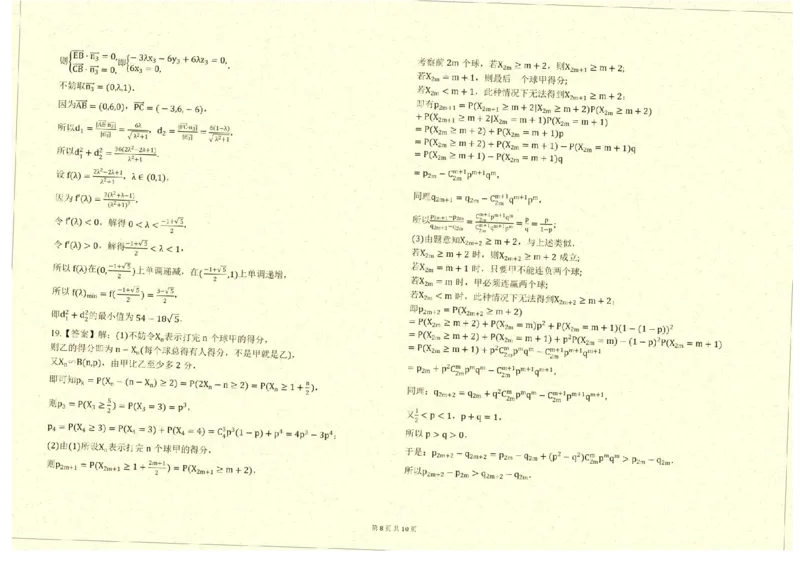 则{EB·n₃ = 0, CB·n₃ = 0, 即{−3λx₃ − 6y₃ + 6λz₃ = 0, 6x₃ = 0,
不妨取n₃ = (0,λ,1).
因为AB = (0,6,0), PC = (−3,6,−6),
所以d₁ = |AB·n₃|/|n₃| = 6λ/√(λ²+1), d₂ = |PC·n₃|/|n₃| = 6(1−λ)/√(λ²+1),
所以d₁² + d₂² = 36(2λ²−2λ+1)/(λ²+1).
设 f(λ) = (2λ²−2λ+1)/(λ²+1), λ ∈ (0,1).
因为 f′(λ) = 2(λ²+λ−1)/(λ²+1)²,
令 f′(λ) < 0, 解得 0 < λ < (−1+√5)/2,
令 f′(λ) > 0, 解得(−1+√5)/2 < λ < 1,
所以 f(λ)在(0, (−1+√5)/2)上单调递减, 在((−1+√5)/2, 1)上单调递增,
所以 f(λ)min = f((−1+√5)/2) = (3−√5)/2,
即d₁² + d₂²的最小值为 54 − 18√5.
19.【答案】解: (1)不妨令Xₙ表示打完 n 个球甲的得分,
则乙的得分即为 n − Xₙ(每个球总得有人得分, 不是甲就是乙),
又Xₙ~B(n,p), 由甲比乙至少多 2 分,
即可知pₙ = P(Xₙ − (n − Xₙ) ≥ 2) = P(2Xₙ − n ≥ 2) = P(Xₙ ≥ 1 + n/2),
则p₃ = P(X₃ ≥ 5/2) = P(X₃ = 3) = p³,
p₄ = P(X₄ ≥ 3) = P(X₄ = 3) + P(X₄ = 4) = C₄³p³(1 − p) + p⁴ = 4p³ − 3p⁴;
(2)由(1)所设Xₙ表示打完 n 个球甲的得分,
则p₂ₘ₊₁ = P(X₂ₘ₊₁ ≥ 1 + (2m+1)/2) = P(X₂ₘ₊₁ ≥ m + 2),
考察前 2m 个球, 若X₂ₘ ≥ m + 2, 则X₂ₘ₊₁ ≥ m + 2;
若X₂ₘ = m + 1, 则最后 个球甲得分;
若X₂ₘ < m + 1, 此种情况下无法得到X₂ₘ₊₁ ≥ m + 2;
即有p₂ₘ₊₁ = P(X₂ₘ₊₁ ≥ m + 2|X₂ₘ ≥ m + 2)P(X₂ₘ ≥ m + 2)
+ P(X₂ₘ₊₁ ≥ m + 2|X₂ₘ = m + 1)P(X₂ₘ = m + 1)
= P(X₂ₘ ≥ m + 2) + P(X₂ₘ = m + 1)p
= P(X₂ₘ ≥ m + 2) + P(X₂ₘ = m + 1) − P(X₂ₘ = m + 1)q
= P(X₂ₘ ≥ m + 1) − P(X₂ₘ = m + 1)q
= p₂ₘ − C₂ₘᵐ⁺¹pᵐ⁺¹qᵐ,
同理q₂ₘ₊₁ = q₂ₘ − C₂ₘᵐ⁺¹qᵐ⁺¹pᵐ,
所以(p₂ₘ₊₁−p₂ₘ)/(q₂ₘ₊₁−q₂ₘ) = C₂ₘᵐ⁺¹pᵐ⁺¹qᵐ/C₂ₘᵐ⁺¹qᵐ⁺¹pᵐ = p/q = p/(1−p);
(3)由题意知X₂ₘ₊₂ ≥ m + 2, 与上述类似,
若X₂ₘ ≥ m + 2 时, 则X₂ₘ₊₂ ≥ m + 2 成立;
若X₂ₘ = m + 1 时, 只要甲不能连负两个球;
若X₂ₘ = m 时, 甲必须连赢两个球;
若X₂ₘ < m 时, 此种情况下无法得到X₂ₘ₊₂ ≥ m + 2;
即p₂ₘ₊₂ = P(X₂ₘ₊₂ ≥ m + 2)
= P(X₂ₘ ≥ m + 2) + P(X₂ₘ = m)p² + P(X₂ₘ = m + 1)(1 − (1 − p)²)
= P(X₂ₘ ≥ m + 2) + P(X₂ₘ = m + 1) + p²P(X₂ₘ = m) − (1 − p)²P(X₂ₘ = m + 1)
= P(X₂ₘ ≥ m + 1) + p²C₂ₘᵐpᵐqᵐ − C₂ₘᵐ⁺¹pᵐ⁺¹qᵐ⁺¹
= p₂ₘ + p²C₂ₘᵐpᵐqᵐ − C₂ₘᵐ⁺¹pᵐ⁺¹qᵐ⁺¹,
同理: q₂ₘ₊₂ = q₂ₘ + q²C₂ₘᵐpᵐqᵐ − C₂ₘᵐ⁺¹pᵐ⁺¹qᵐ⁺¹,
又1/2 < p < 1, p + q = 1,
所以 p > q > 0,
于是: p₂ₘ₊₂ − q₂ₘ₊₂ = p₂ₘ − q₂ₘ + (p² − q²)C₂ₘᵐpᵐqᵐ > p₂ₘ − q₂ₘ,
所以p₂ₘ₊₂ − p₂ₘ > q₂ₘ₊₂ − q₂ₘ.
第 8 页 共 10 页